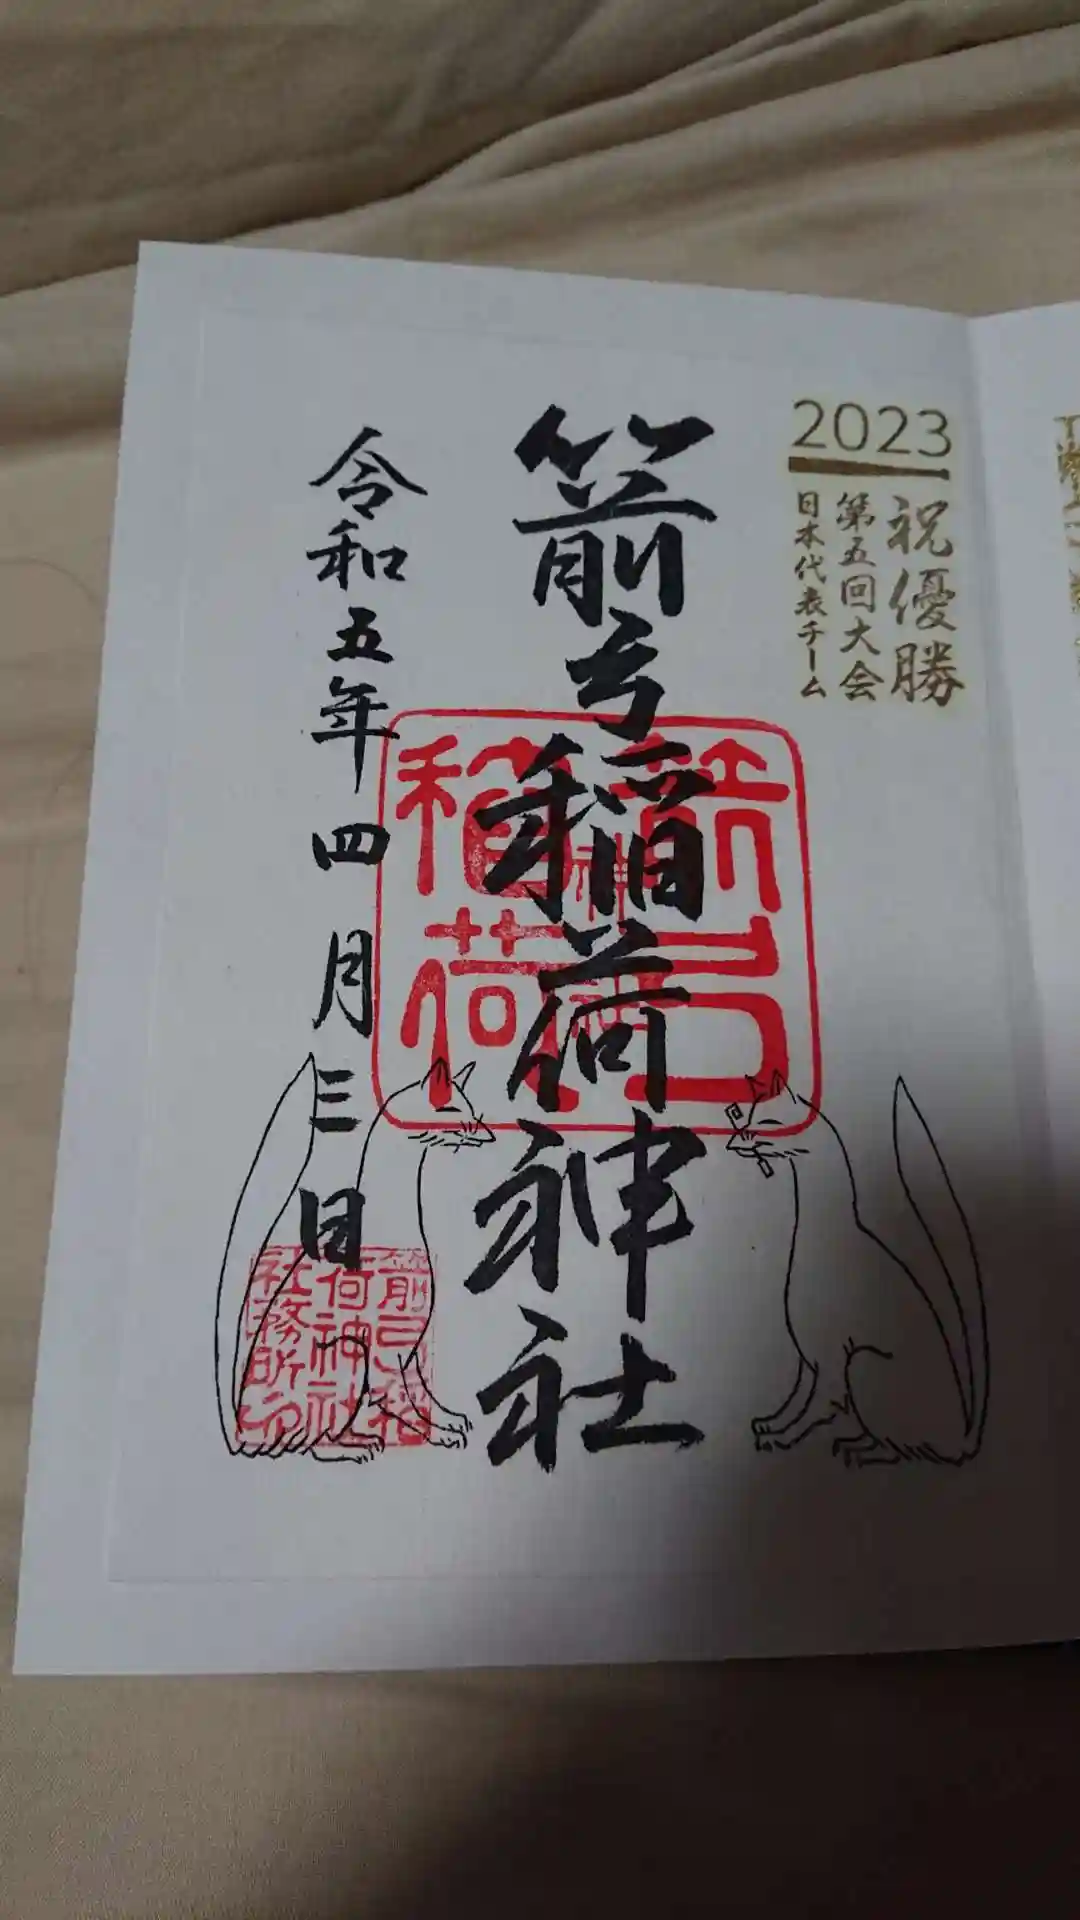 2023
祝優勝
第五回大会
日本代表チーム
箭弓稲荷神社
令和五年四月三日
箭弓
稲荷
神社
箭弓稲
荷神社
社務所印